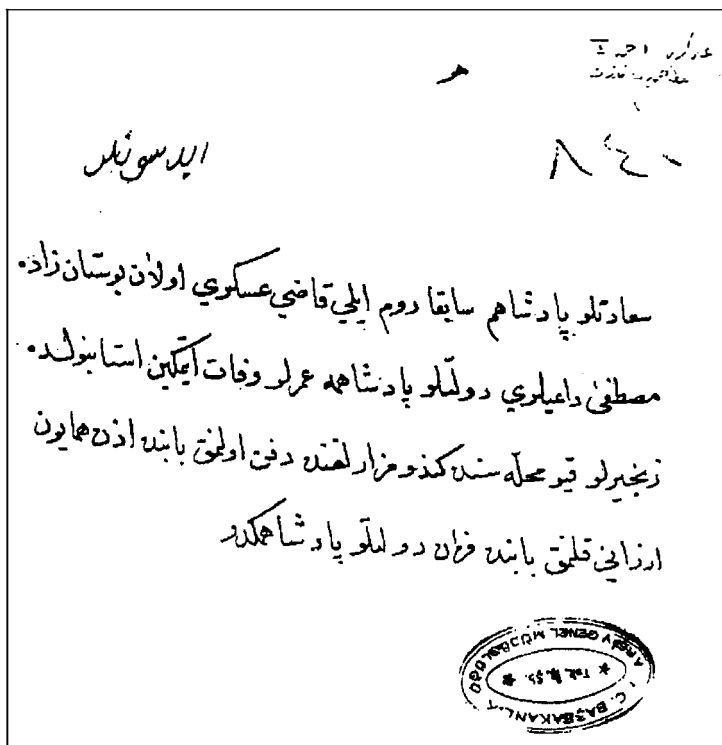 هو
٨٤٠
ايدسونلر
سعادتلو پادشاهم سابقا روم ايلي قاضي عسكري اولان بوستان زاده
مصطفى داعيلري دولتلو پادشاهمه عمرلر وفات ايتمكين استانبولده
زنجيرلو قپو محله سنده كندو مزارلغنده دفن اولنمق بابنده اذن همايون
ارزاني قلنمق بابنده فرمان دولتلو پادشاهمكدر
T.C. BAŞBAKANLIK
ARŞİV GENEL MÜDÜRLÜĞÜ